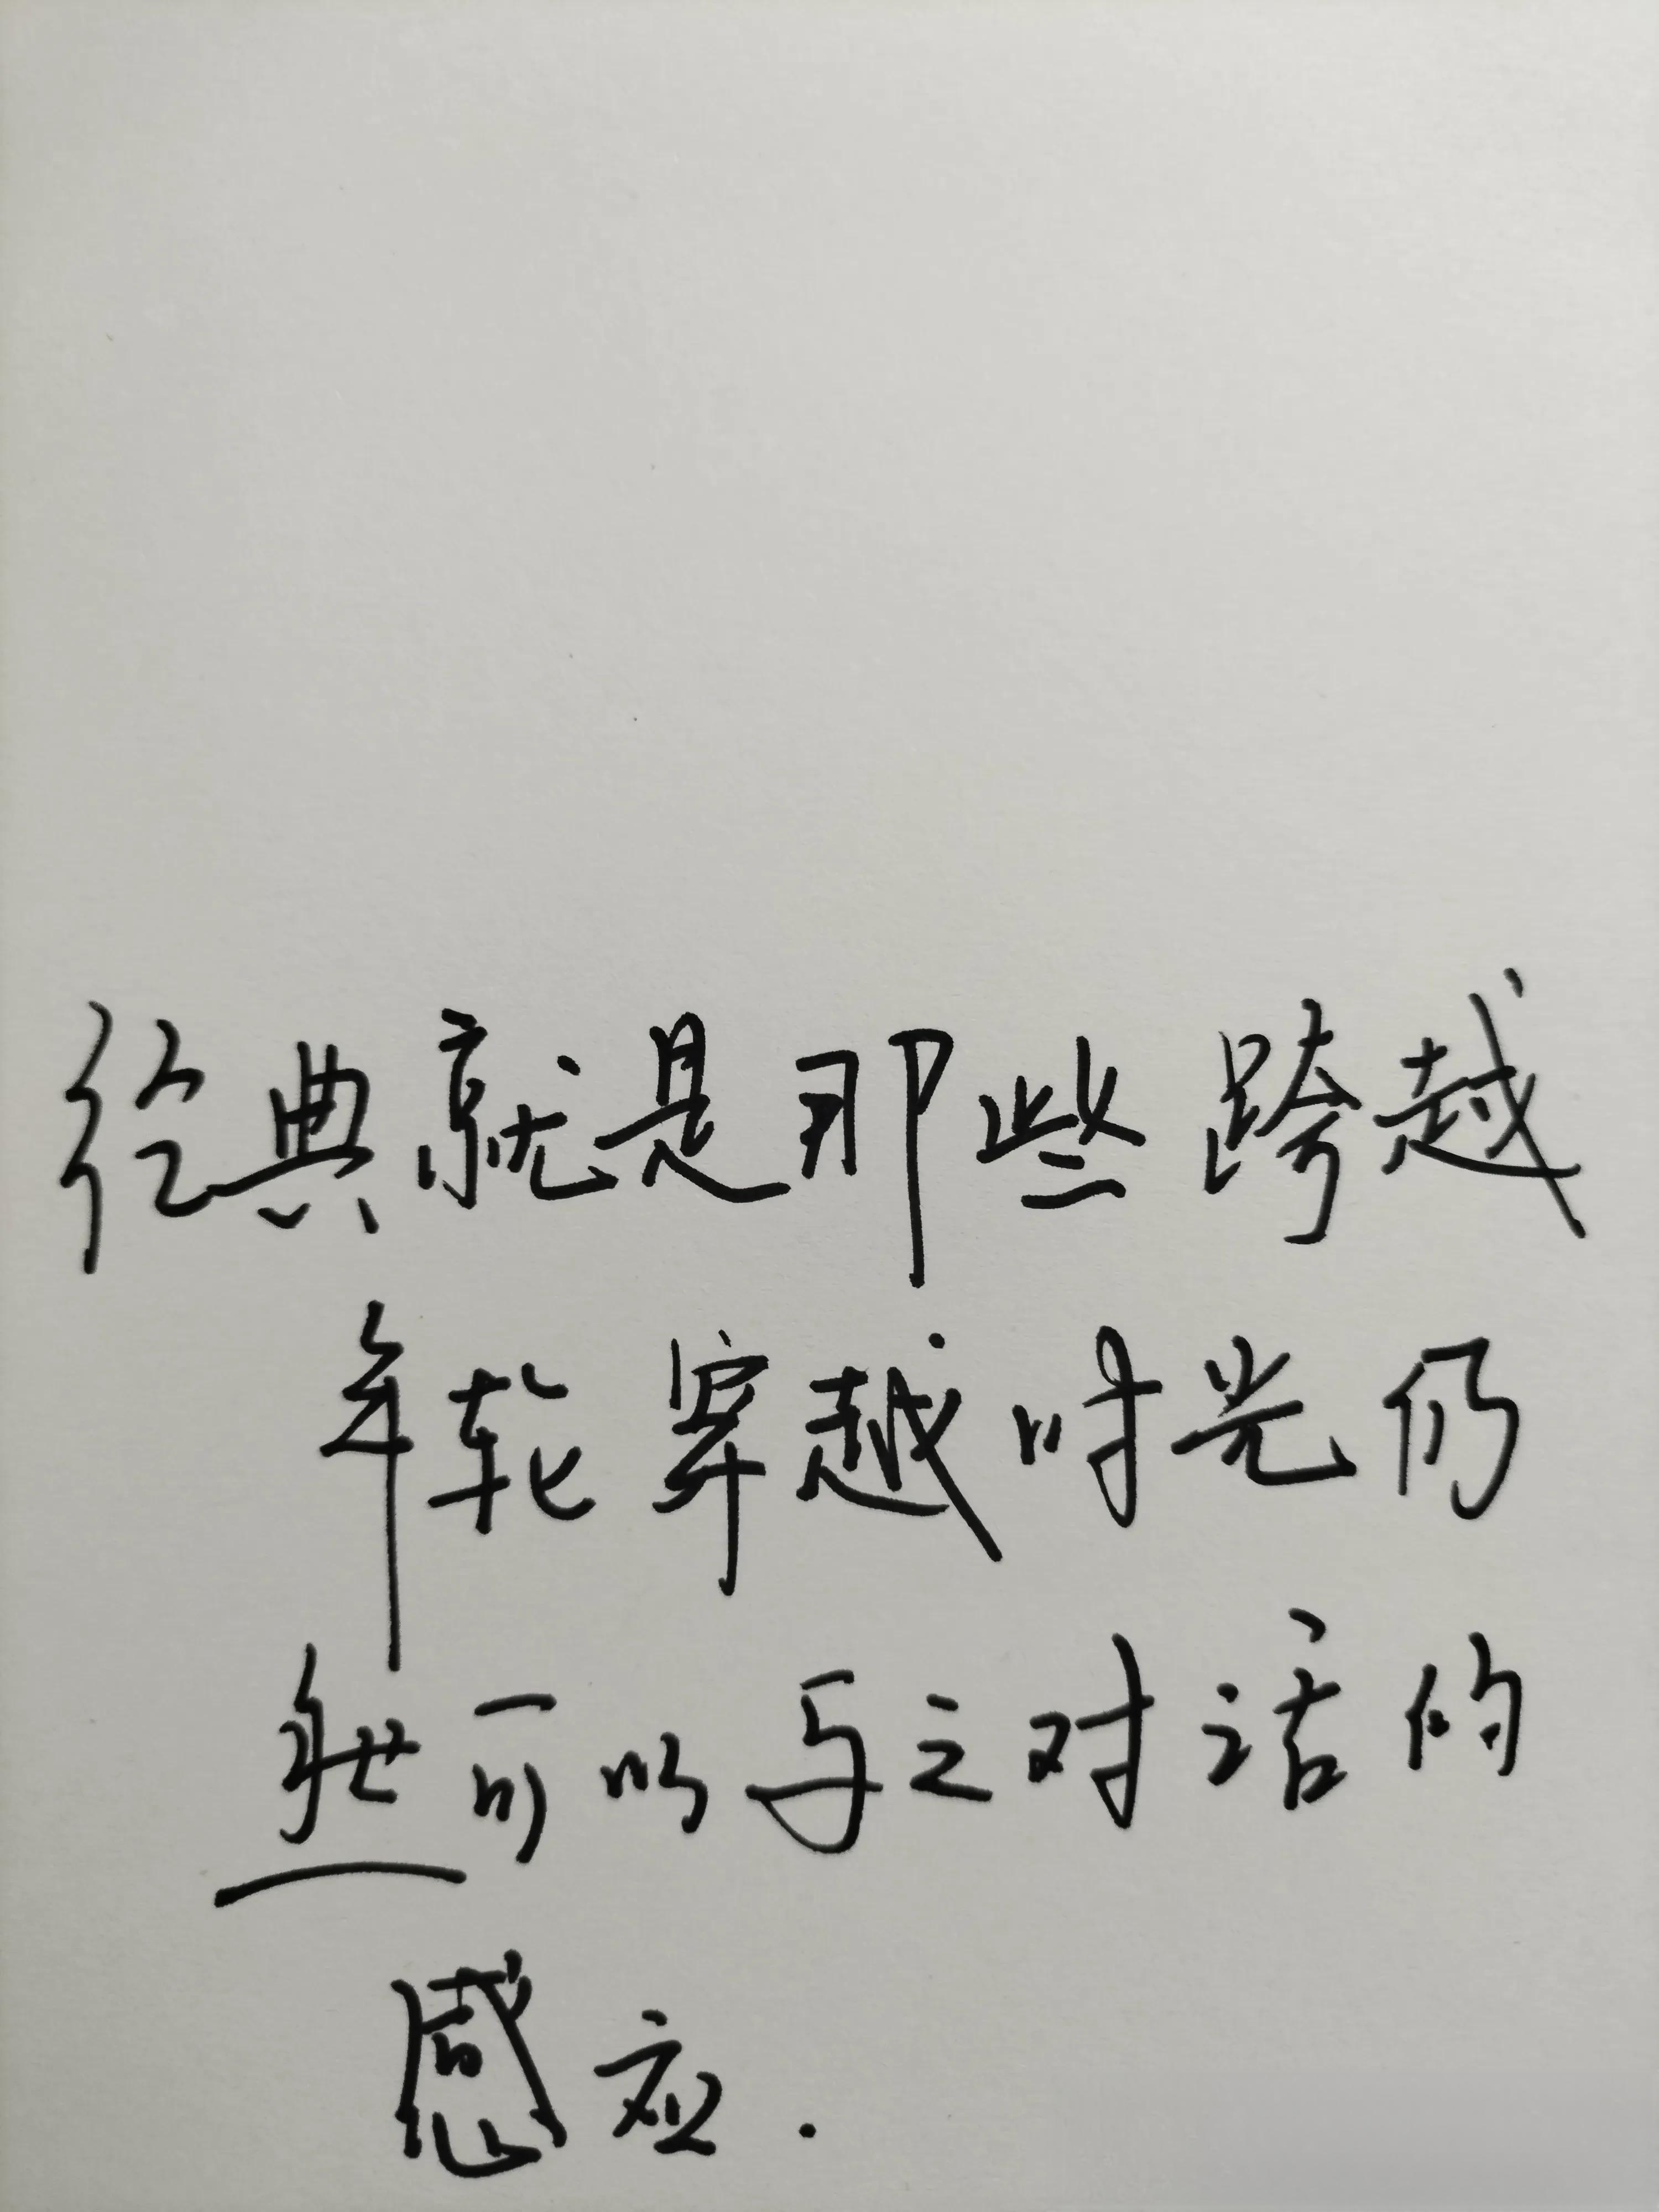 经典就是那些跨越
年轮穿越时光仍
然可以与之对话的
感应.